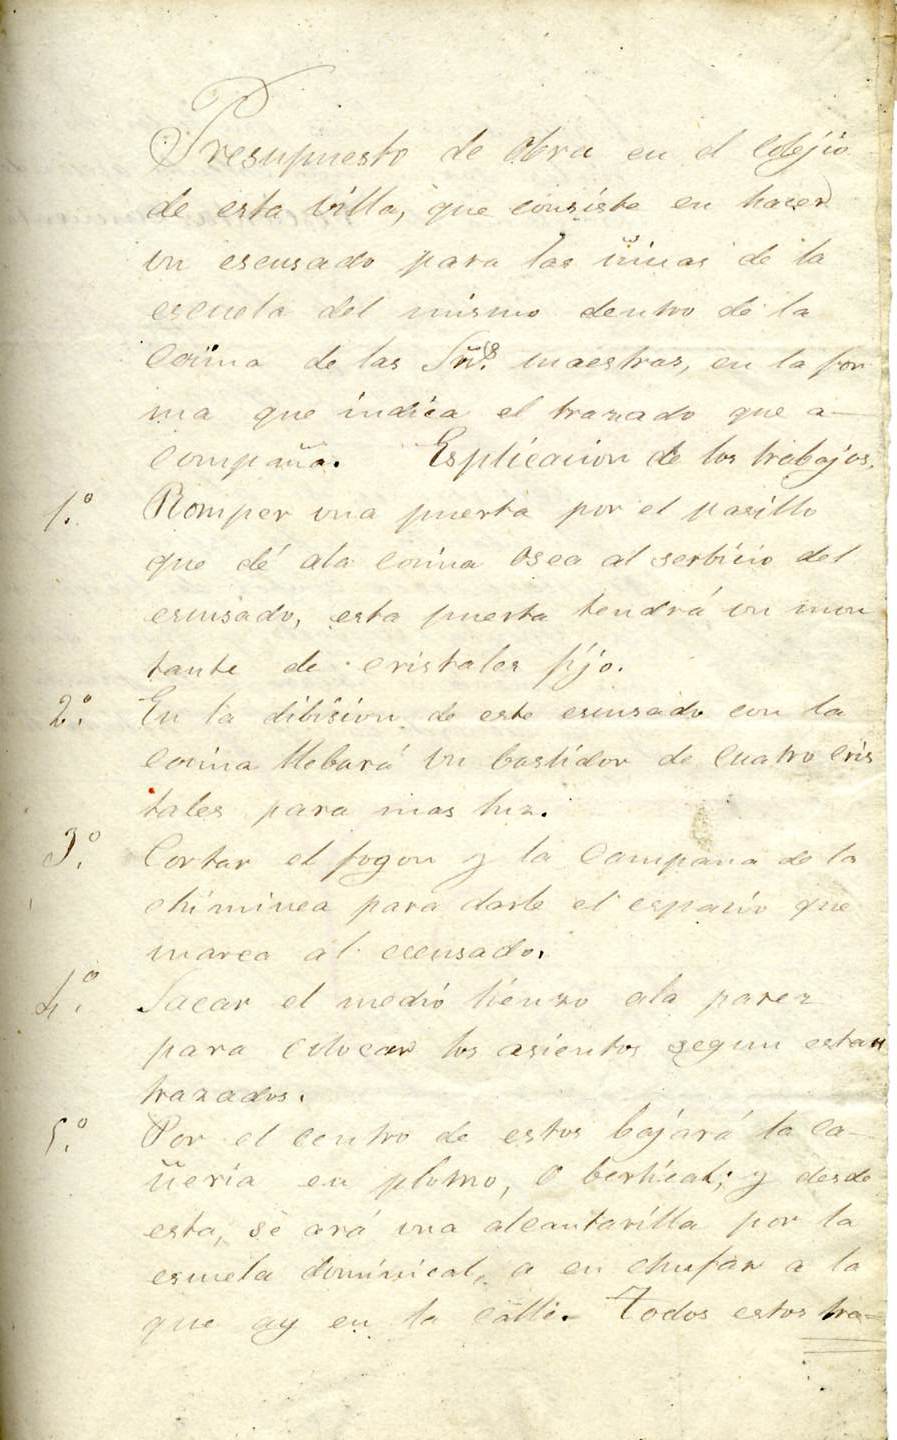 Presupuesto de obra en el colejio
de esta villa, que consiste en hacer
un escusado para las niñas de la
escuela del mismo dentro de la
Cocina de las Sñrs. maestras, en la for
ma que indica el trazado que a-
compaña. Esplicacion de los trabajos.
1.º Romper una puerta por el pasillo
que dé ala cocina osea al serbicio del
escusado, esta puerta tendrá un mon
tante de cristales fijo.
2.º En la dibision de este escusado con la
cocina llebará un bastidor de cuatro cris
tales para mas luz.
3.º Cortar el fogon y la campana de la
chiminea para darle el espacio que
marca al escusado.
4.º Sacar el medio lienzo ala parez
para colocar los asientos segun estan
trazados.
5.º Por el centro de estos bajará la ca-
ñeria en plomo, o bertical; y desde
esta, se ará una alcantarilla por la
escuela dominical, a en chufar a la
que ay en la calle. Todos estos tra=